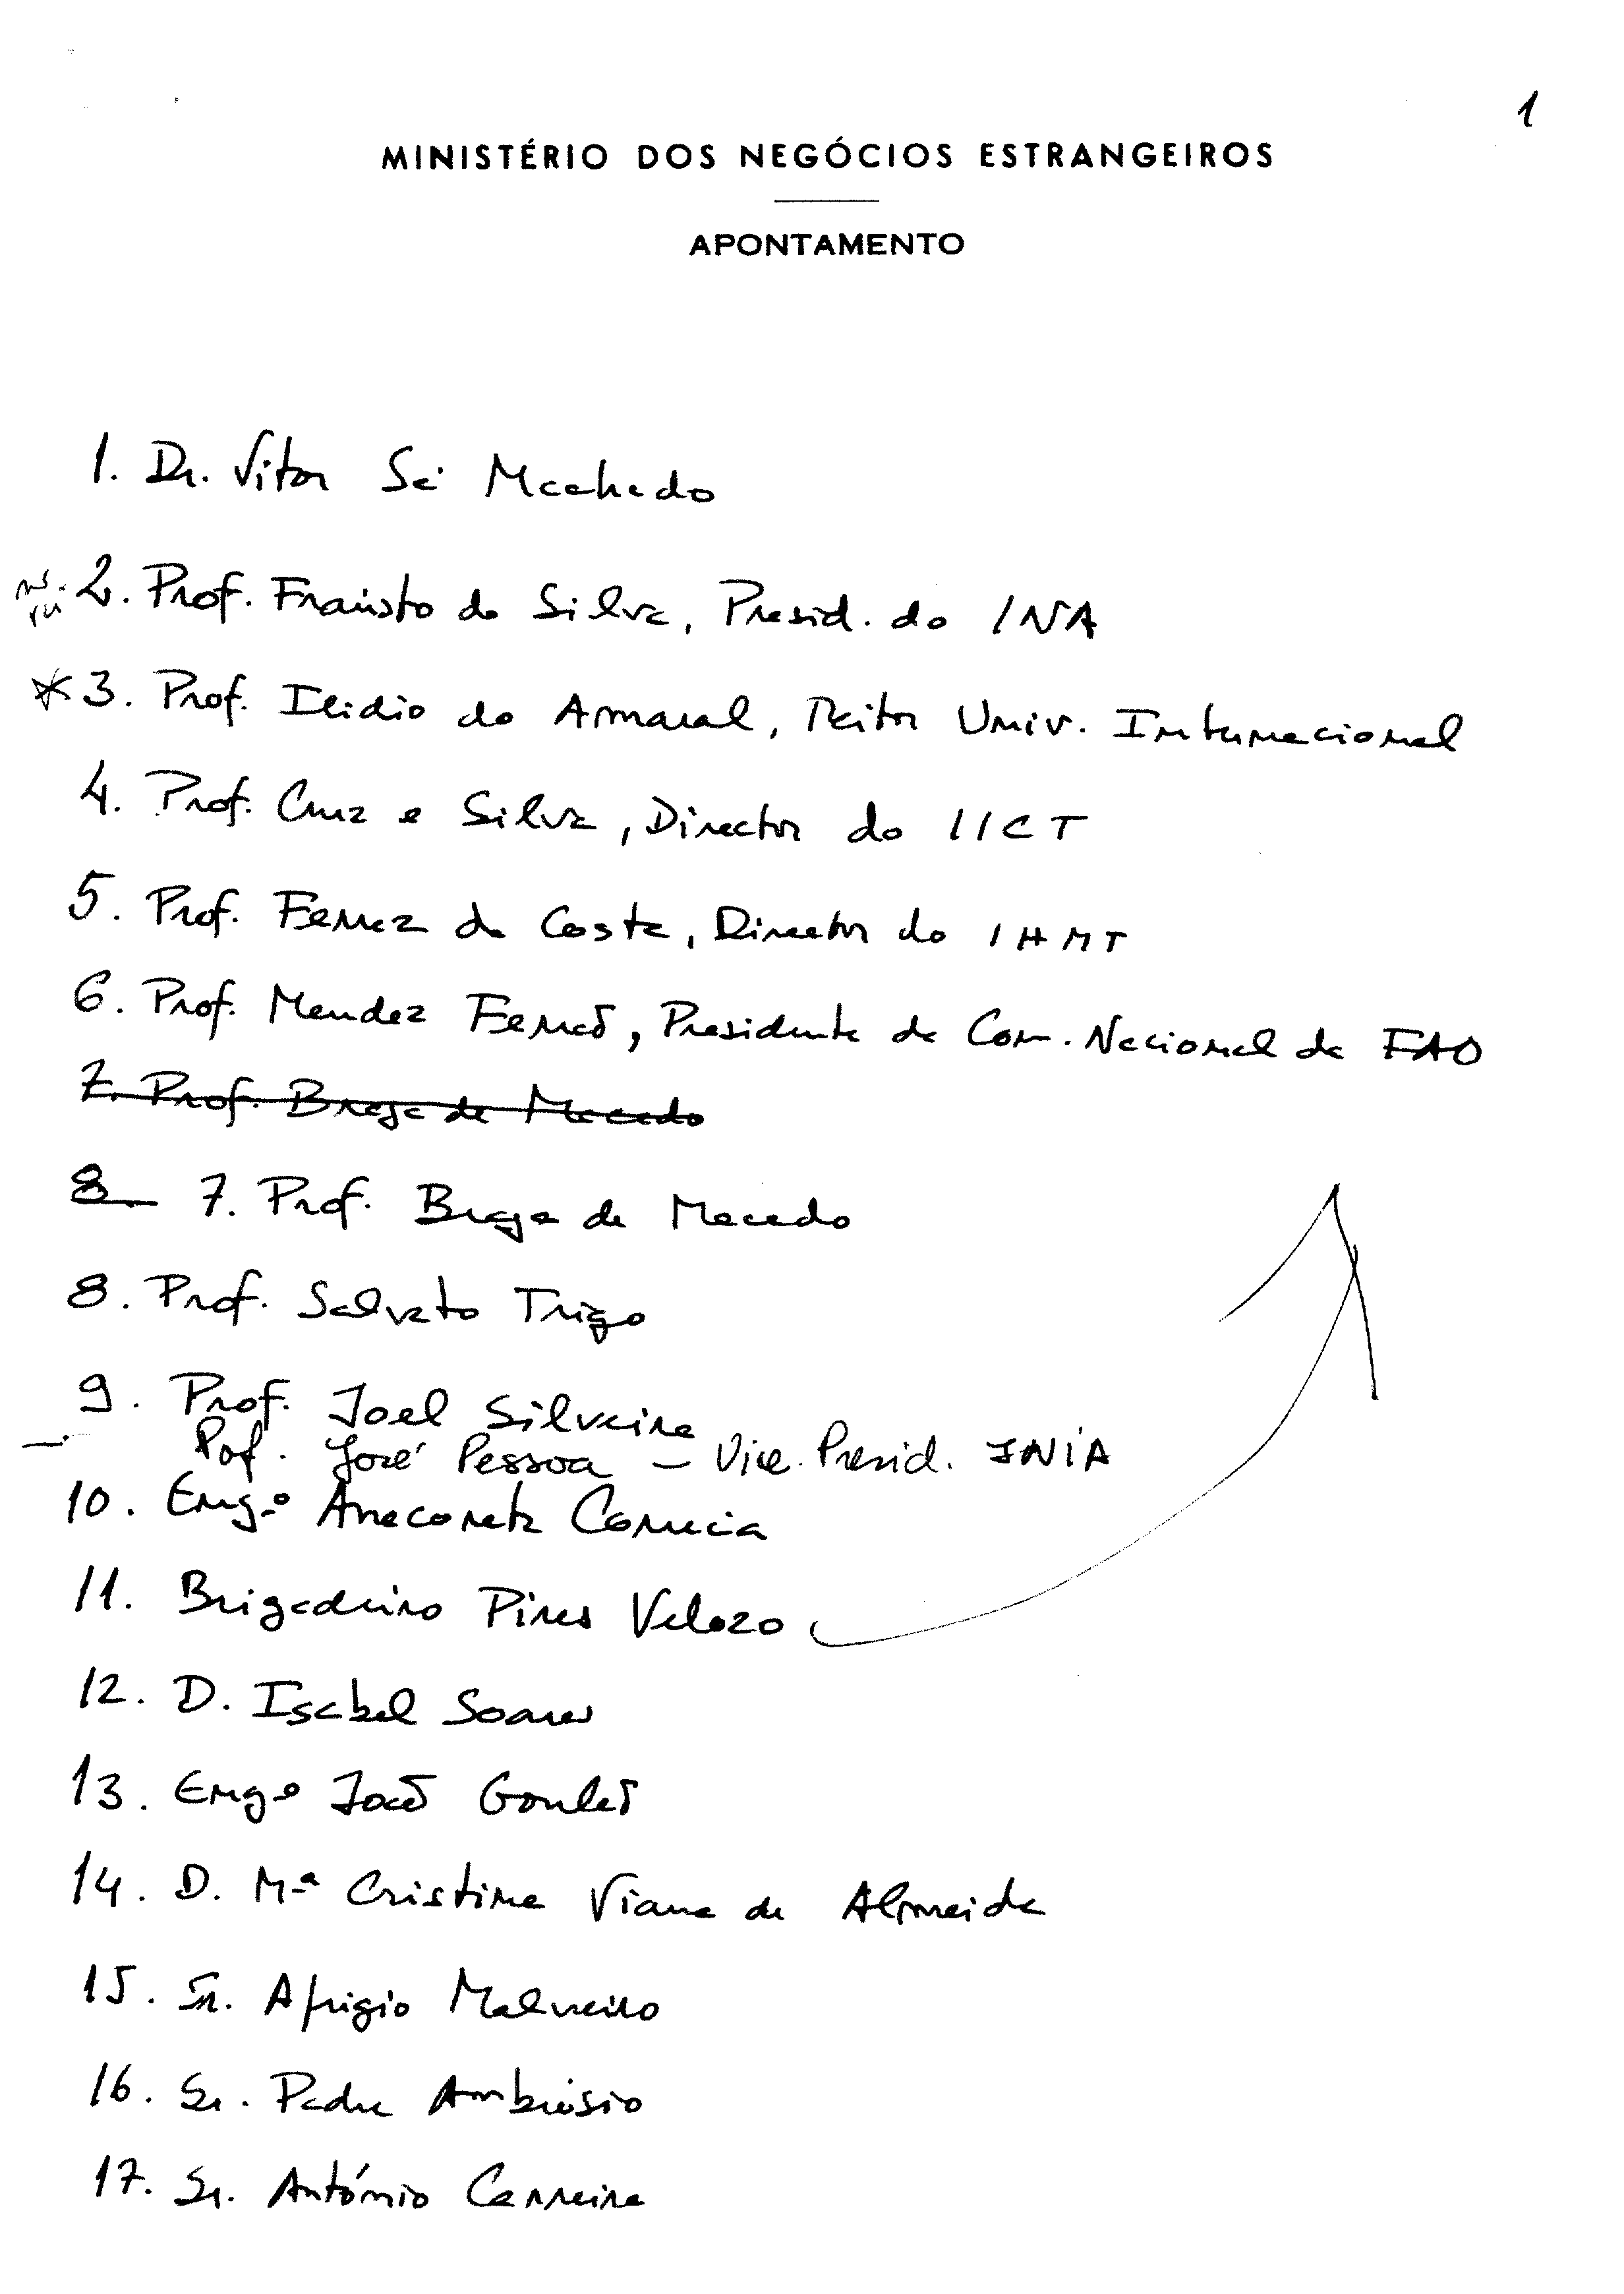 1
MINISTÉRIO DOS NEGÓCIOS ESTRANGEIROS
APONTAMENTO
1. Dr. Vitor Sá Machado
2. Prof. Fraústo da Silva, Presid. do INA
* 3. Prof. Ilidio do Amaral, Reitor Univ. Internacional
4. Prof. Cruz e Silva, Director do IICT
5. Prof. Ferraz da Costa, Director do IHMT
6. Prof. Mendez Ferrão, Presidente da Com. Nacional da FAO
7. Prof. Braga de Macedo
8 7. Prof. Braga de Macedo
8. Prof. Salvato Trigo
9. Prof. Joel Silveira
Prof. José Pessoa - Vice. Presid. INIA
10. Engº Anacoreta Correia
11. Brigadeiro Pires Velozo
12. D. Isabel Soares
13. Engº João Goulão
14. D. Mª Cristina Viana de Almeida
15. Sr. Afrigio
16. Sr. Padre Ambrósio
17. Sr. António Carreira